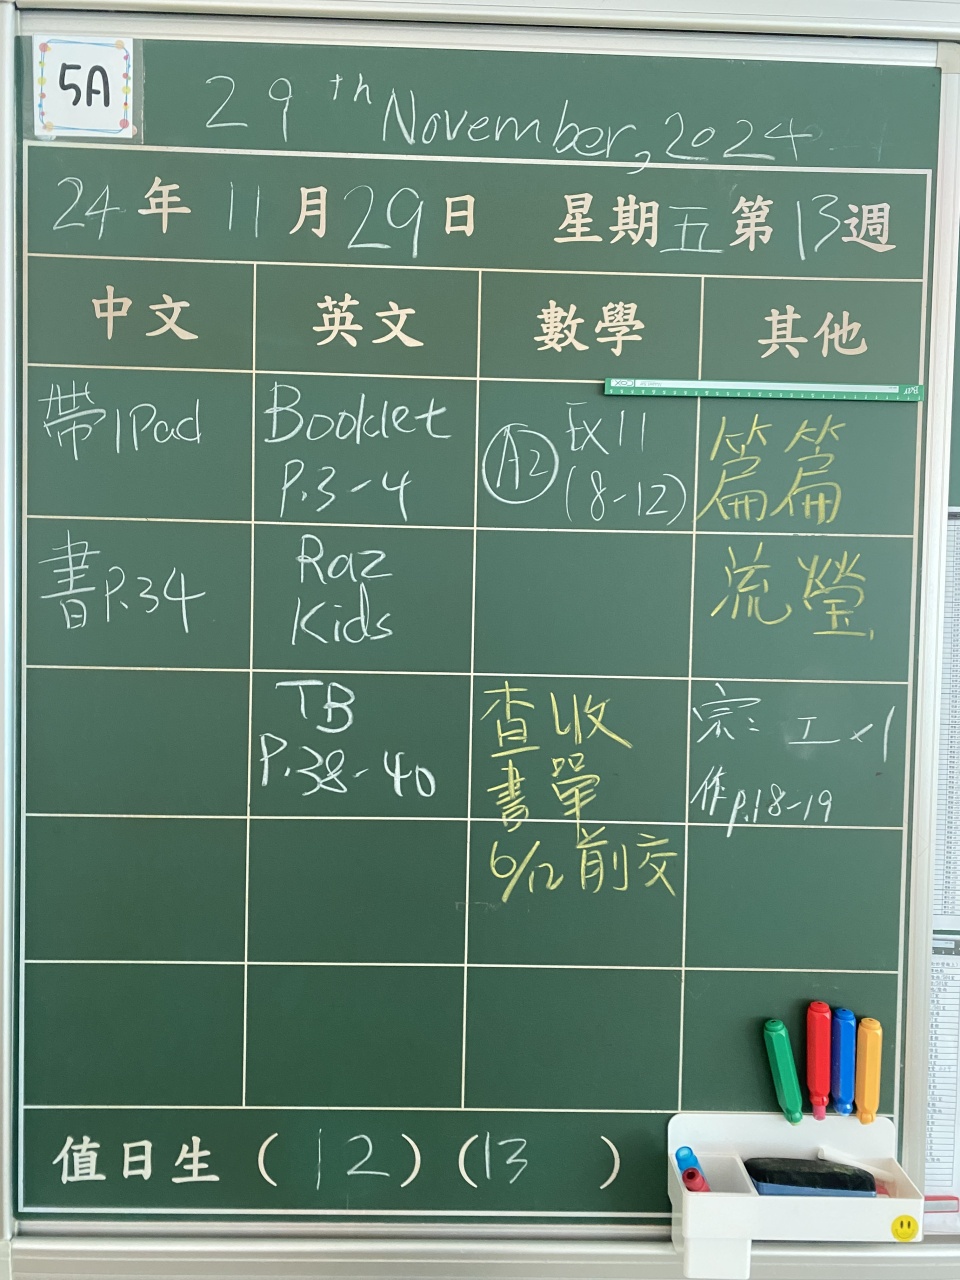 5A
29th November, 2024
24年11月29日 星期五第13週
中文 英文 數學 其他
帶IPad
Booklet
P.3-4
A2 EX11
(8-12)
篇篇
流螢
書P.34
Raz
Kids
TB
P.38-40
查收
書單
6/12前交
宗: 工x1
作p.18-19
值日生(12)(13)